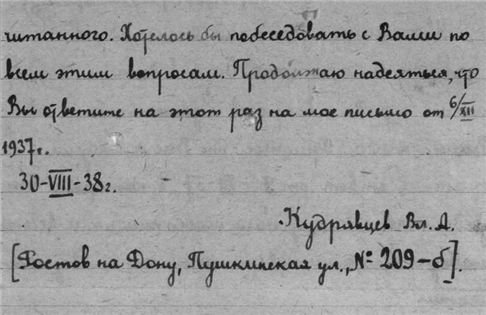 читанного. Хотелось бы побеседовать с Вами по
всем этим вопросам. Продолжаю надеяться, что
Вы ответите на этот раз на мое письмо от 6/XII
1937г.
30-VIII-38г.
Кудрявцев Вл. А.
[Ростов на Дону, Пушкинская ул., № 209-б].